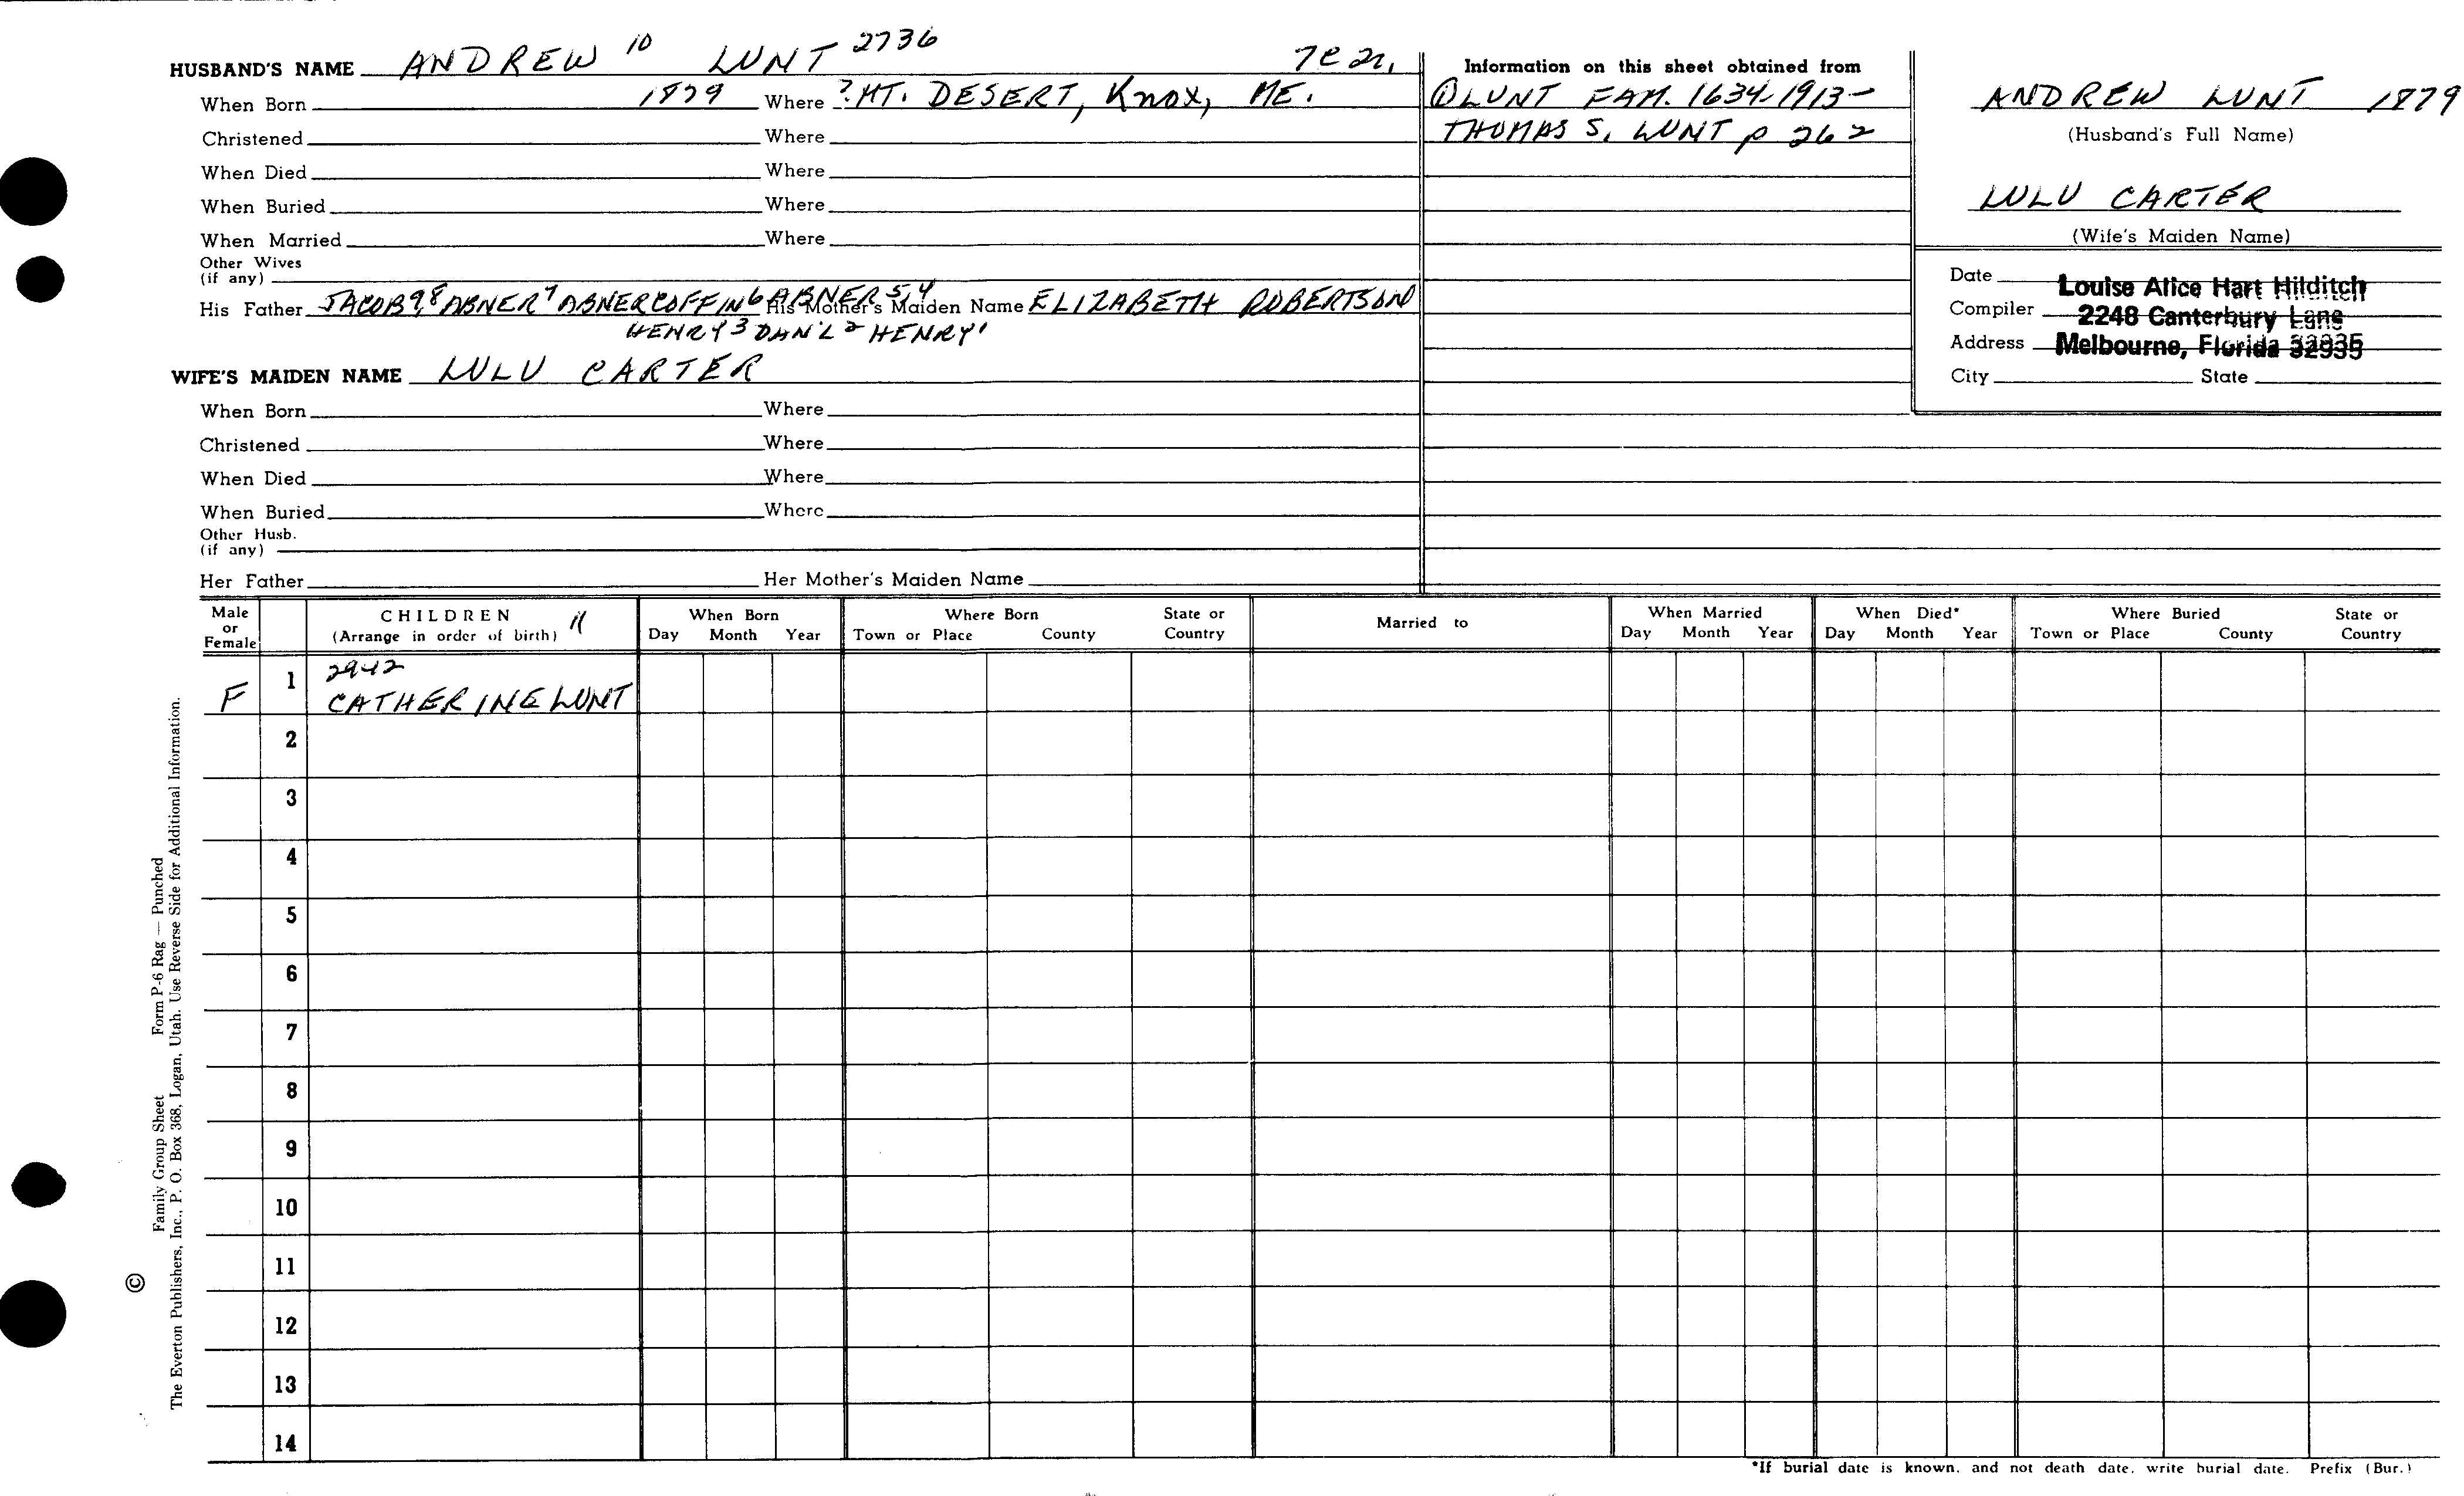 HUSBAND'S NAME ANDREW 10 LUNT 2736
When Born 1879 Where ? MT. DESERT, Knox, ME.
Christened Where
When Died Where
When Buried Where
When Married Where
Other Wives
(if any)
His Father JACOB 9, 8 ABNER 7 ABNER COFFIN 6 ABNER 5 4 His Mother's Maiden Name ELIZABETH ROBERTSON
HENRY 3 DAN'L 2 HENRY 1
WIFE'S MAIDEN NAME LULU CARTER
When Born Where
Christened Where
When Died Where
When Buried Where
Other Husb.
(if any)
Her Father Her Mother's Maiden Name
Information on this sheet obtained from
① LUNT FAM. 1634-1913-
THOMAS S. LUNT p 262
ANDREW LUNT 1879
(Husband's Full Name)
LULU CARTER
(Wife's Maiden Name)
Date Louise Alice Hart Hilditch
Compiler 2248 Canterbury Lane
Address Melbourne, Florida 32935
City State
Male or Female
CHILDREN 11
(Arrange in order of birth)
When Born
Day Month Year
Where Born
Town or Place County State or Country
Married to
When Married
Day Month Year
When Died*
Day Month Year
Where Buried
Town or Place County State or Country
2942
F 1 CATHERINE LUNT
2
3
4
5
6
7
8
9
10
11
12
13
14
*If burial date is known, and not death date, write burial date. Prefix (Bur.)
Family Group Sheet Form P-6 Rag — Punched
© The Everton Publishers, Inc., P. O. Box 368, Logan, Utah. Use Reverse Side for Additional Information.